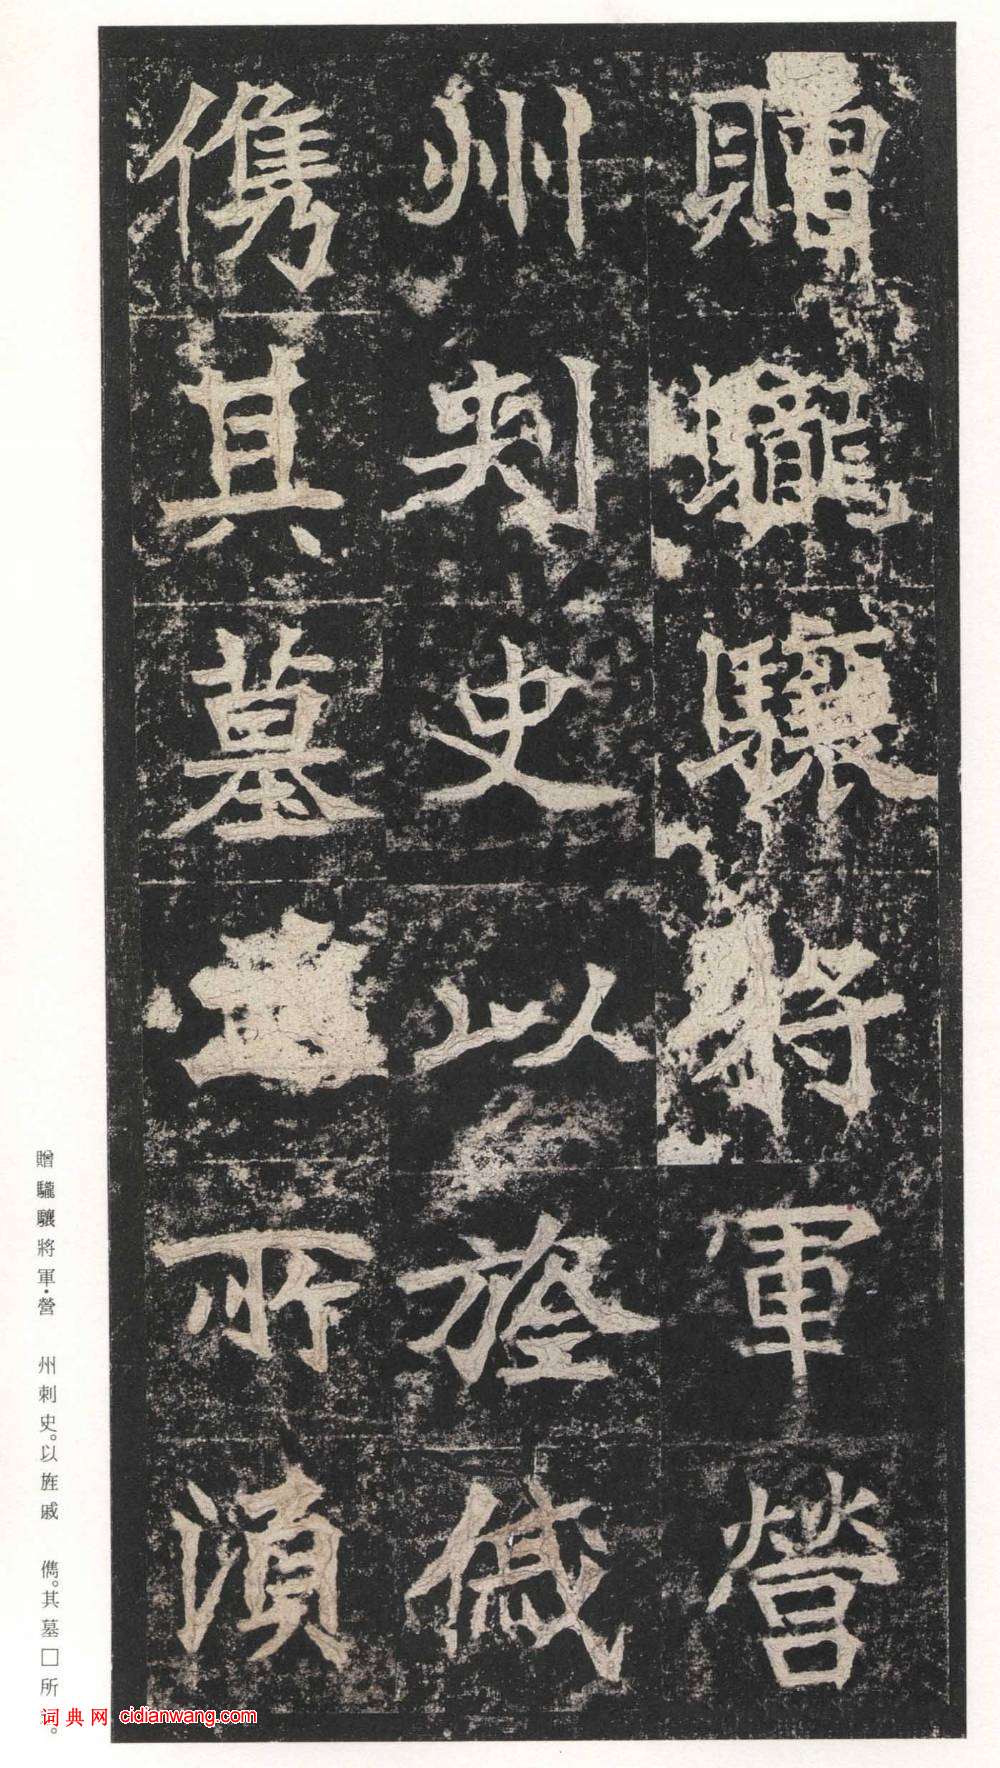 贈驪驤將軍營
州刺史以旌戚
儁其墓所須
贈驪驤將軍·營 州刺史。以旌戚 儁。其墓□所
词典网 cidianwang.com